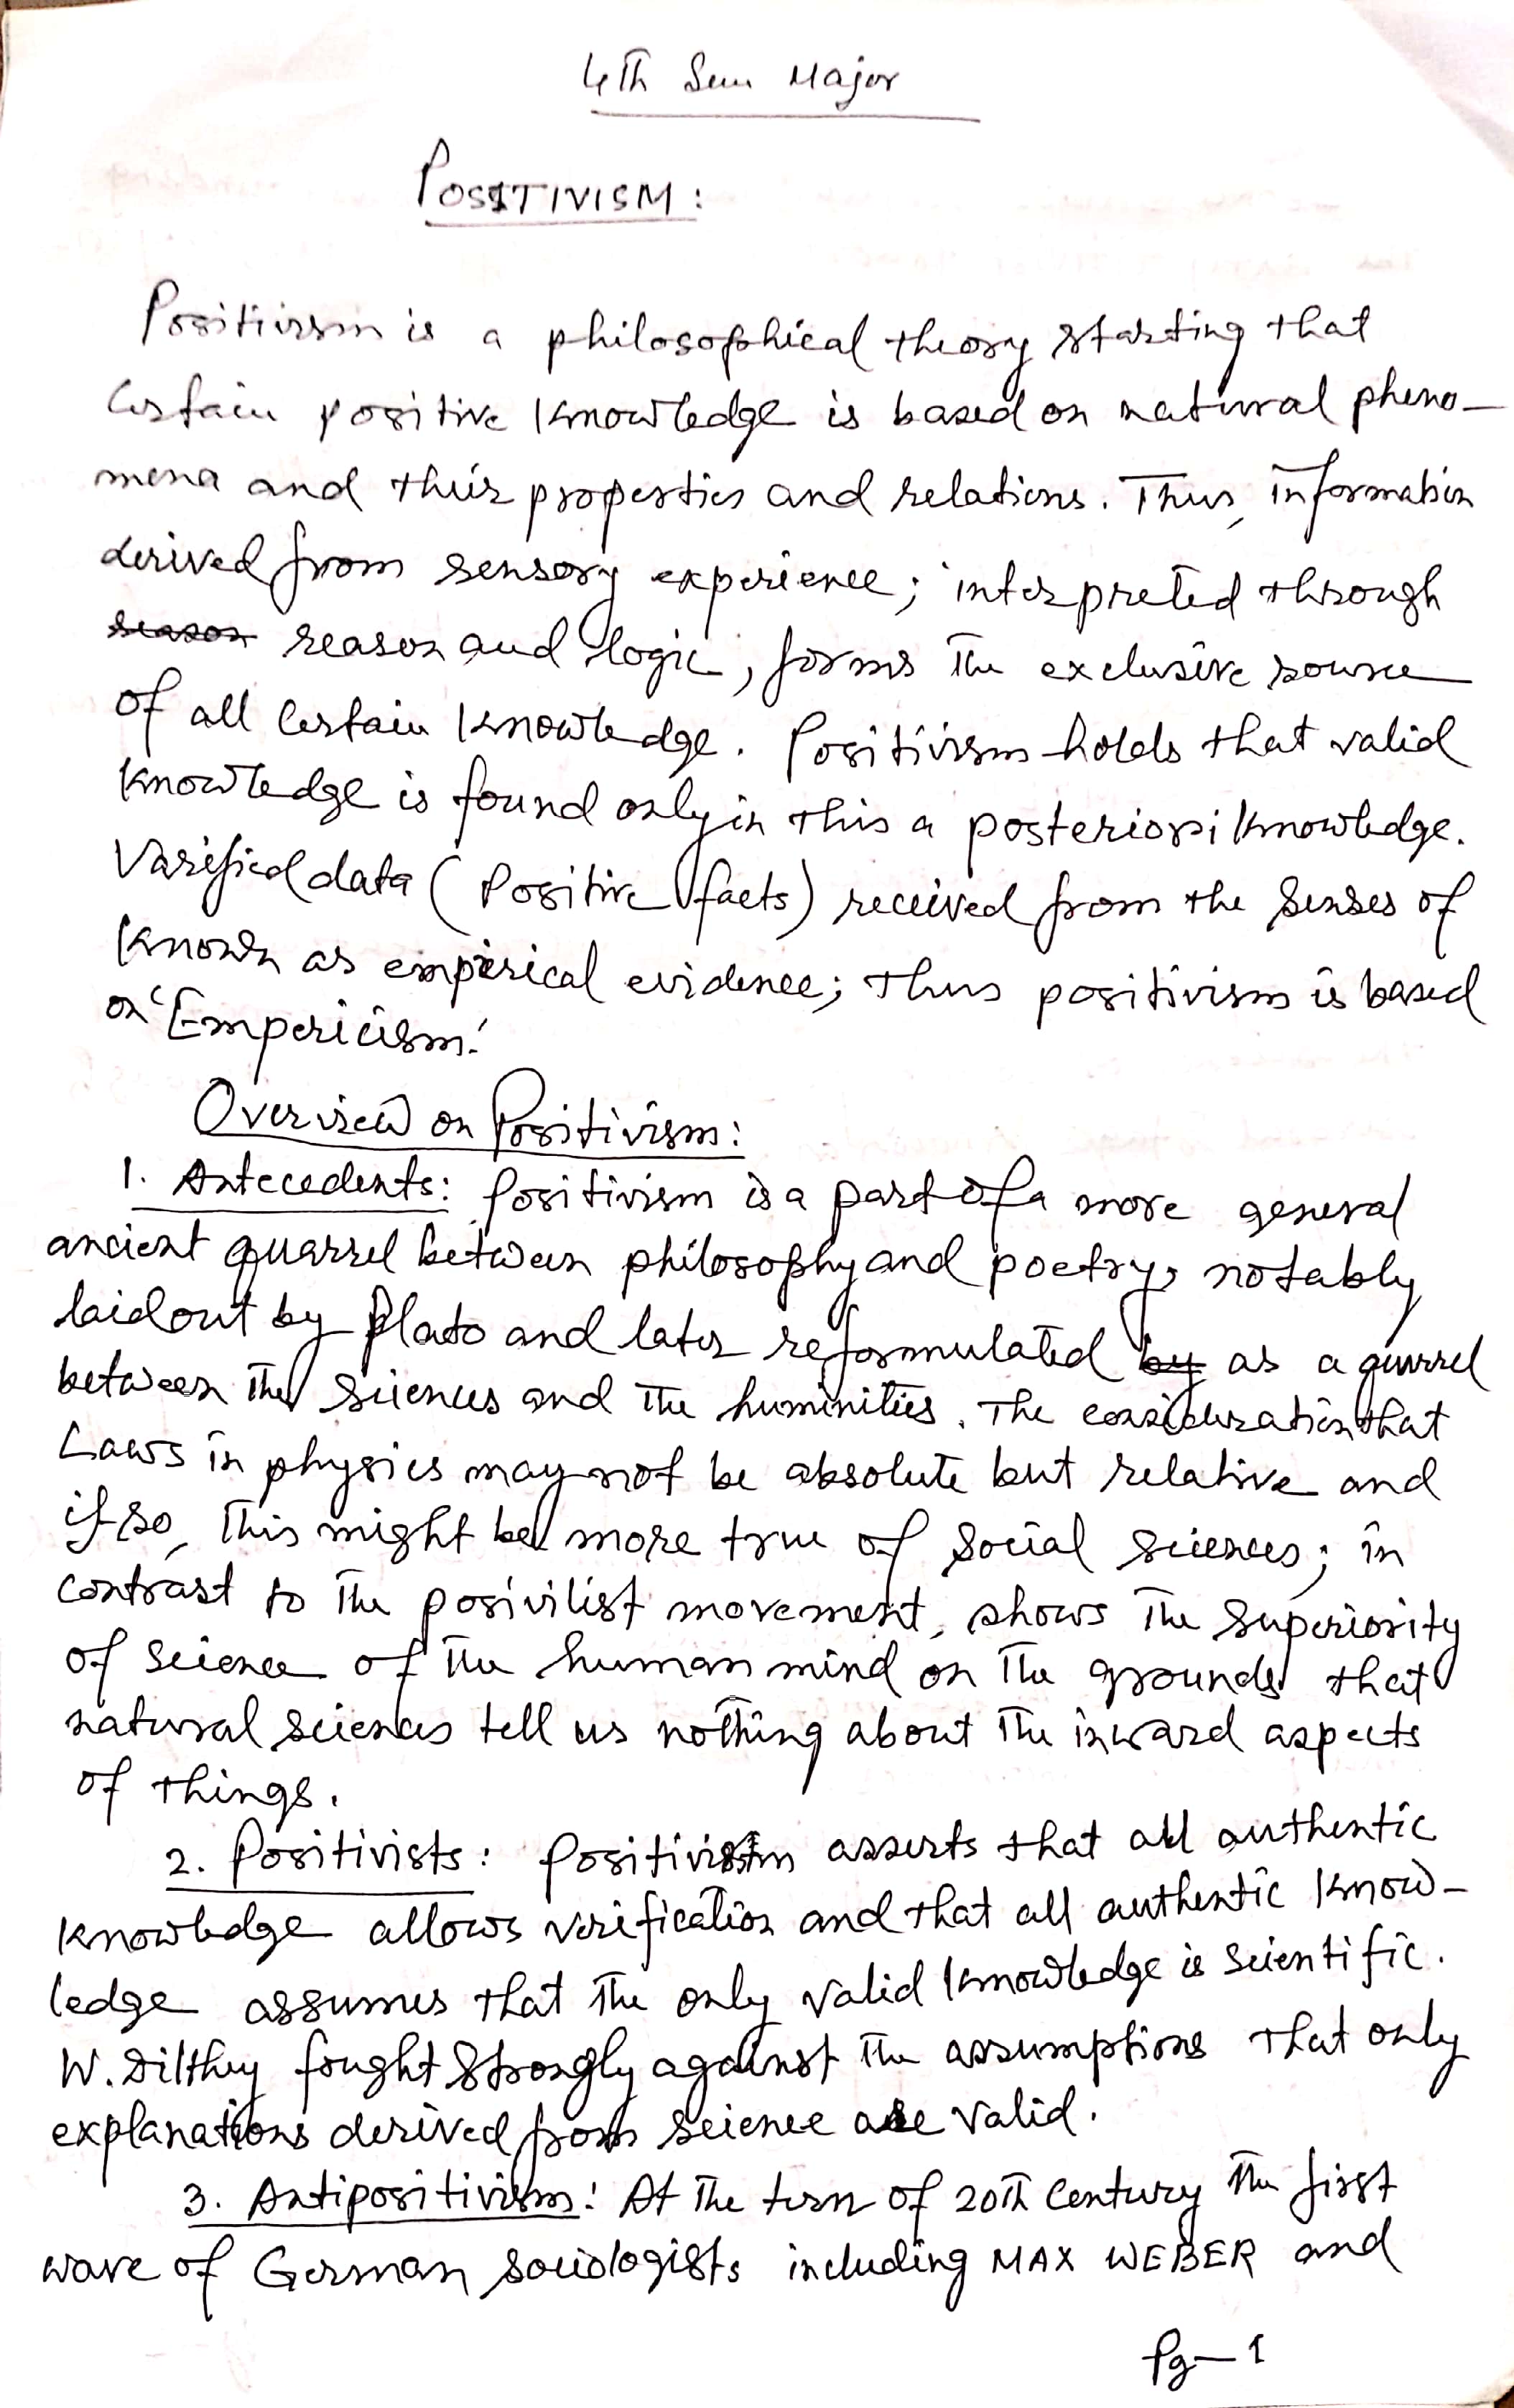 4Th Sem Major
POSITIVISM:
Positivism is a philosophical theory starting that
Certain positive knowledge is based on natural pheno-
mena and their properties and relations. Thus, information
derived from sensory experience; interpreted through
season reason and logic, forms the exclusive source
of all Certain knowledge. Positivism holds that valid
knowledge is found only in this a posteriori knowledge.
Varified data (Positive facts) received from the senses of
known as empirical evidence; thus positivism is based
on 'Empericism.'
Overview on Positivism:
1. Antecedents: Positivism is a part of a more general
ancient quarrel between philosophy and poetry, notably
laidout by Plato and later reformulated by as a qurrel
between the sciences and the huminities. The consideration that
Laws in physics may not be absolute but relative and
if so, this might be more true of social sciences; in
contrast to the posivilist movement, shows the superiority
of science of the human mind on the grounds that
natural sciences tell us nothing about the inward aspects
of things.
2. Positivists: Positivism asserts that all authentic
knowledge allows verification and that all authentic know-
ledge assumes that the only valid knowledge is scientific.
W. Dilthy fought strongly against the assumptions that only
explanations derived from science are valid.
3. Antipositivism: At the turn of 20Th Century the first
wave of German sociologists including MAX WEBER and
Pg-1